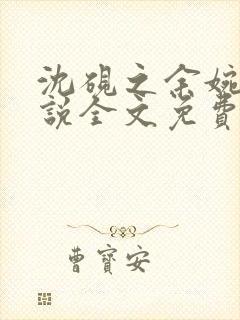 沈砚之余婉
說全文免費
曹寶安